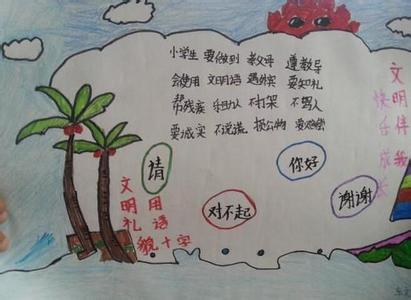 小学生 要做到 遵教导
会使用 文明语 遇外宾 要知礼
帮残疾 不打架 不骂人
要诚实 不说谎 损公物 要赔偿
请
你好
对不起
谢谢
文明礼貌
用语十字
文明伴我
快乐成长